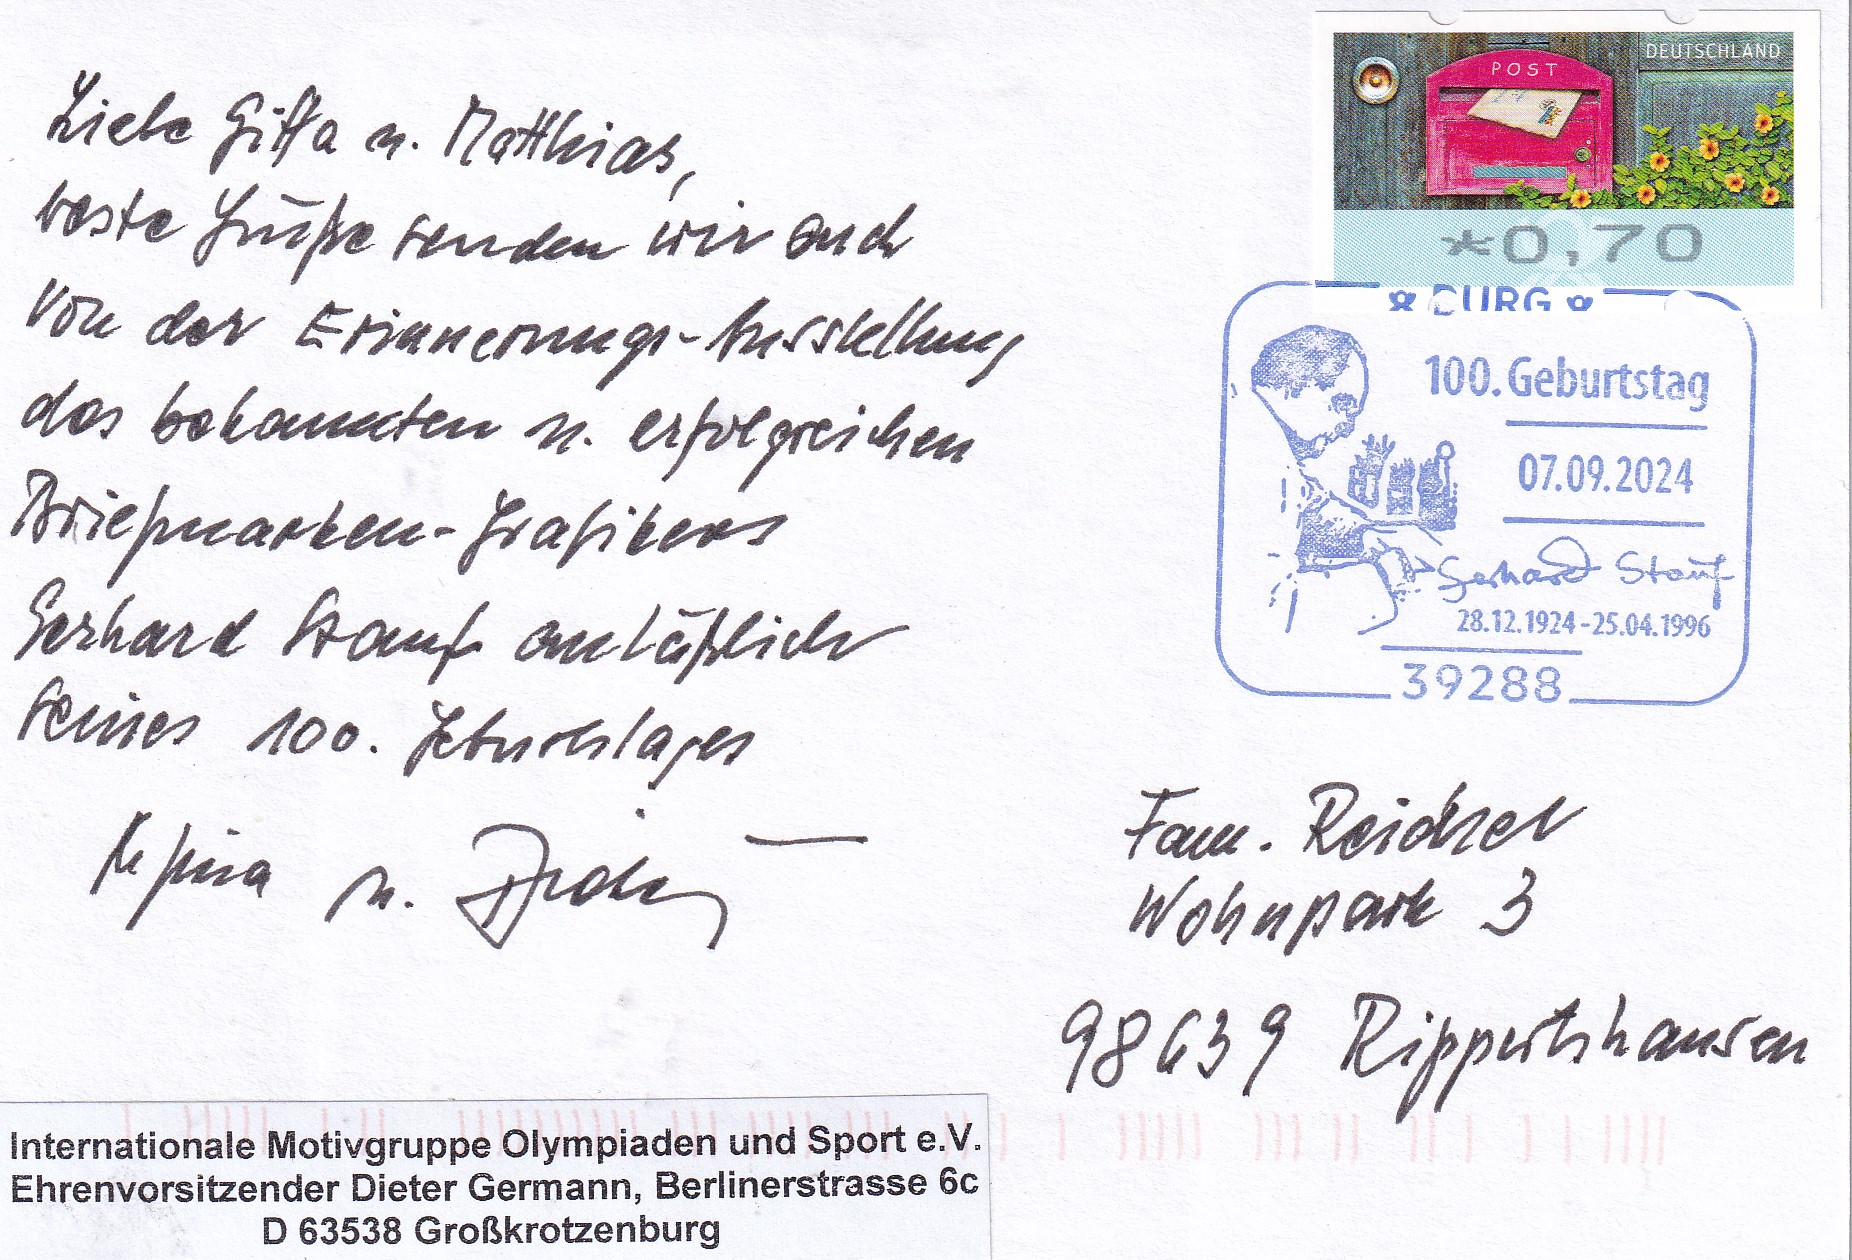 Liebe Gitta u. Matthias,
beste Grüße senden wir auch
von der Erinnerungs-Ausstellung
des bekannten u. erfolgreichen
Briefmarken-Grafikers
Gerhard Stauf anläßlich
seines 100. Geburtstages
u. Dieter
DEUTSCHLAND
POST
*0,70
BURG
100. Geburtstag
07.09.2024
Gerhard Stauf
28.12.1924-25.04.1996
39288
Fam. Reichel
Wohnpark 3
98639 Rippertshausen
Internationale Motivgruppe Olympiaden und Sport e.V.
Ehrenvorsitzender Dieter Germann, Berlinerstrasse 6c
D 63538 Großkrotzenburg